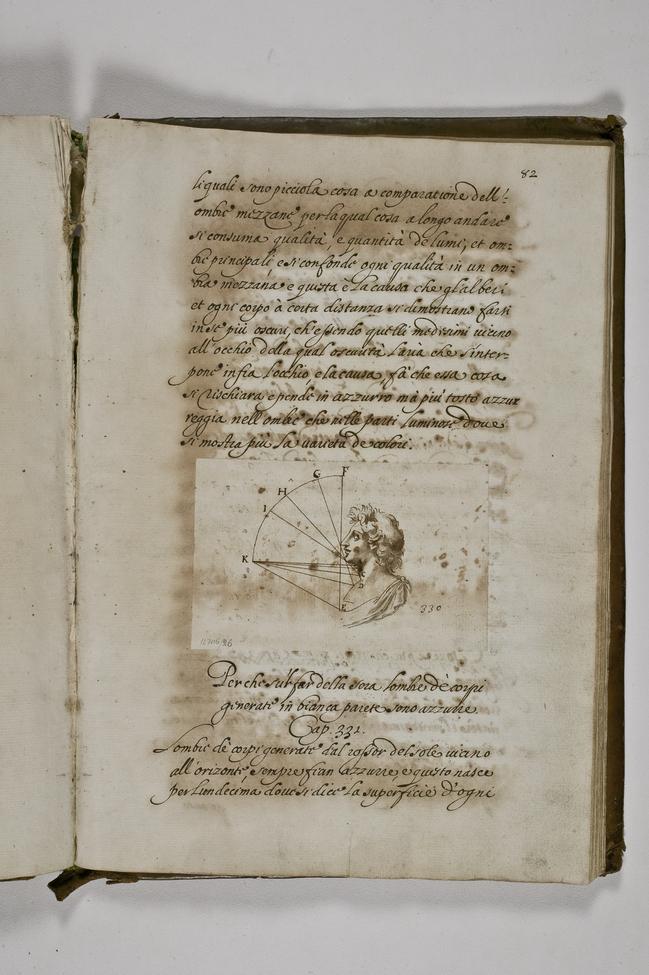 82
li quali sono picciola cosa a comparatione dell'
ombre mezzane per la qual cosa a longo andare
si consuma qualità, e quantità de lumi, et om:
bre principali, e si confonde ogni qualità in un om:
bra mezzana e questa è la causa che gl'alberi
et ogni corpo à certa distanza si dimostrano farsi
in se più oscuri, ch'essendo quelli medesimi vicino
all'occhio della qual oscurità l'aria che s'inter-
pone infra l'occhio e la cosa, fà che essa cosa
si rischiara e pende in azzurro mà più tosto azzur
reggia nell'ombre che nelle parti luminose dove
si mostra più la varietà de colori.
F
G
H
I
K
D
E
330
Per che su'l far della sera l'ombre de corpi
generate in bianca parete sono azzurre
Cap. 331.
L'ombre de corpi generate dal rossor del sole vicino
all'orizonte sempre fian azzurre, e questo nasce
per l'undecima dove si dice la superficie d'ogni